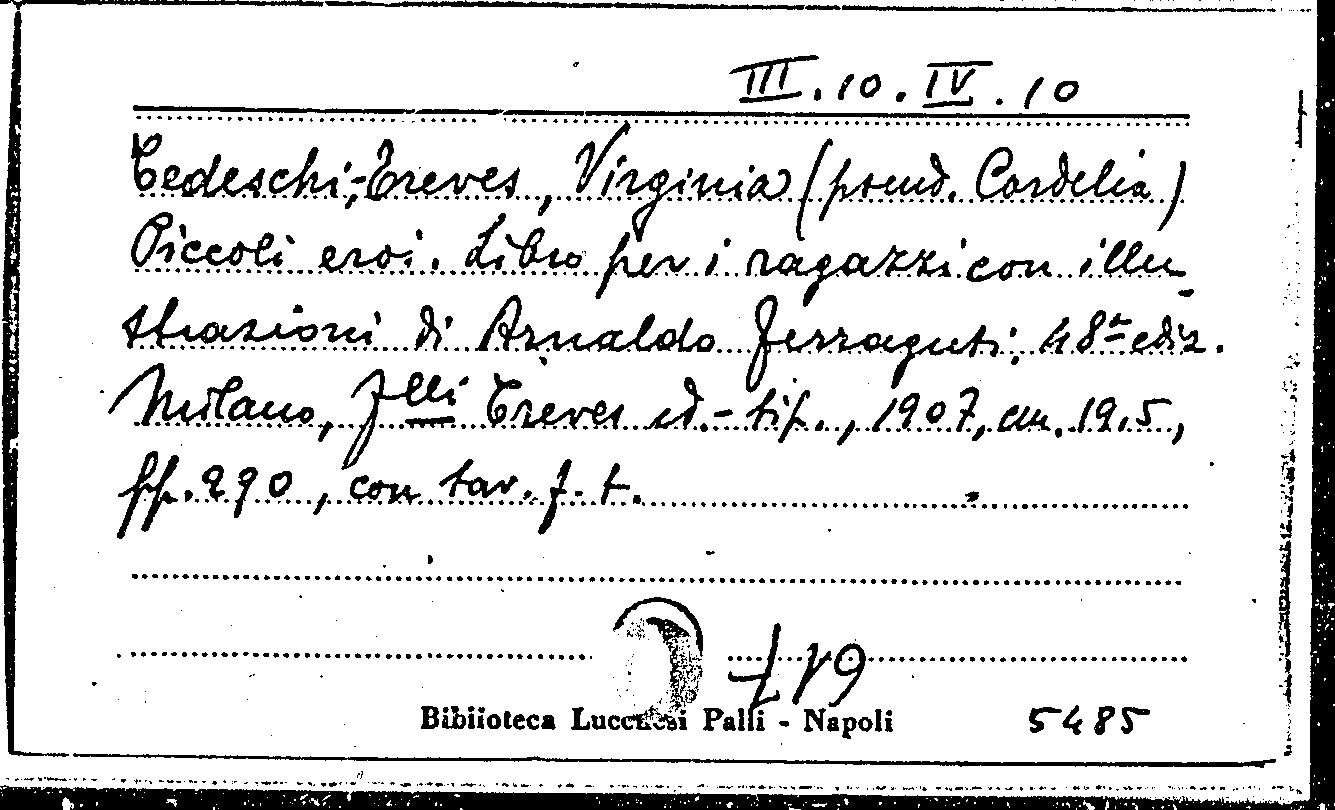 III.10.IV.10
Tedeschi-Treves, Virginia (pseud. Cordelia)
Piccoli eroi. Libro per i ragazzi con illu-
strazioni di Arnaldo Ferraguti. 48ª ediz.
Milano, F.lli Treves ed.-tip., 1907, cm. 19.5,
pp. 290, con tav. f. t.
Biblioteca Lucchesi Palli - Napoli 5485